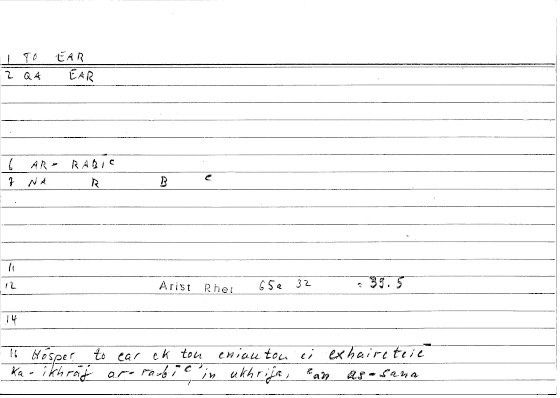 1 TO EAR
2 QA EAR
6 AR- RABĪc
7 NA R B c
11
12 Arist Rhet 65a 32 = 39.5
14
16 Hōsper to ear ek tou eniautou ei exhaireteiē
Ka-ikhrāj ar-rabīc, in ukhrija, can as-sana